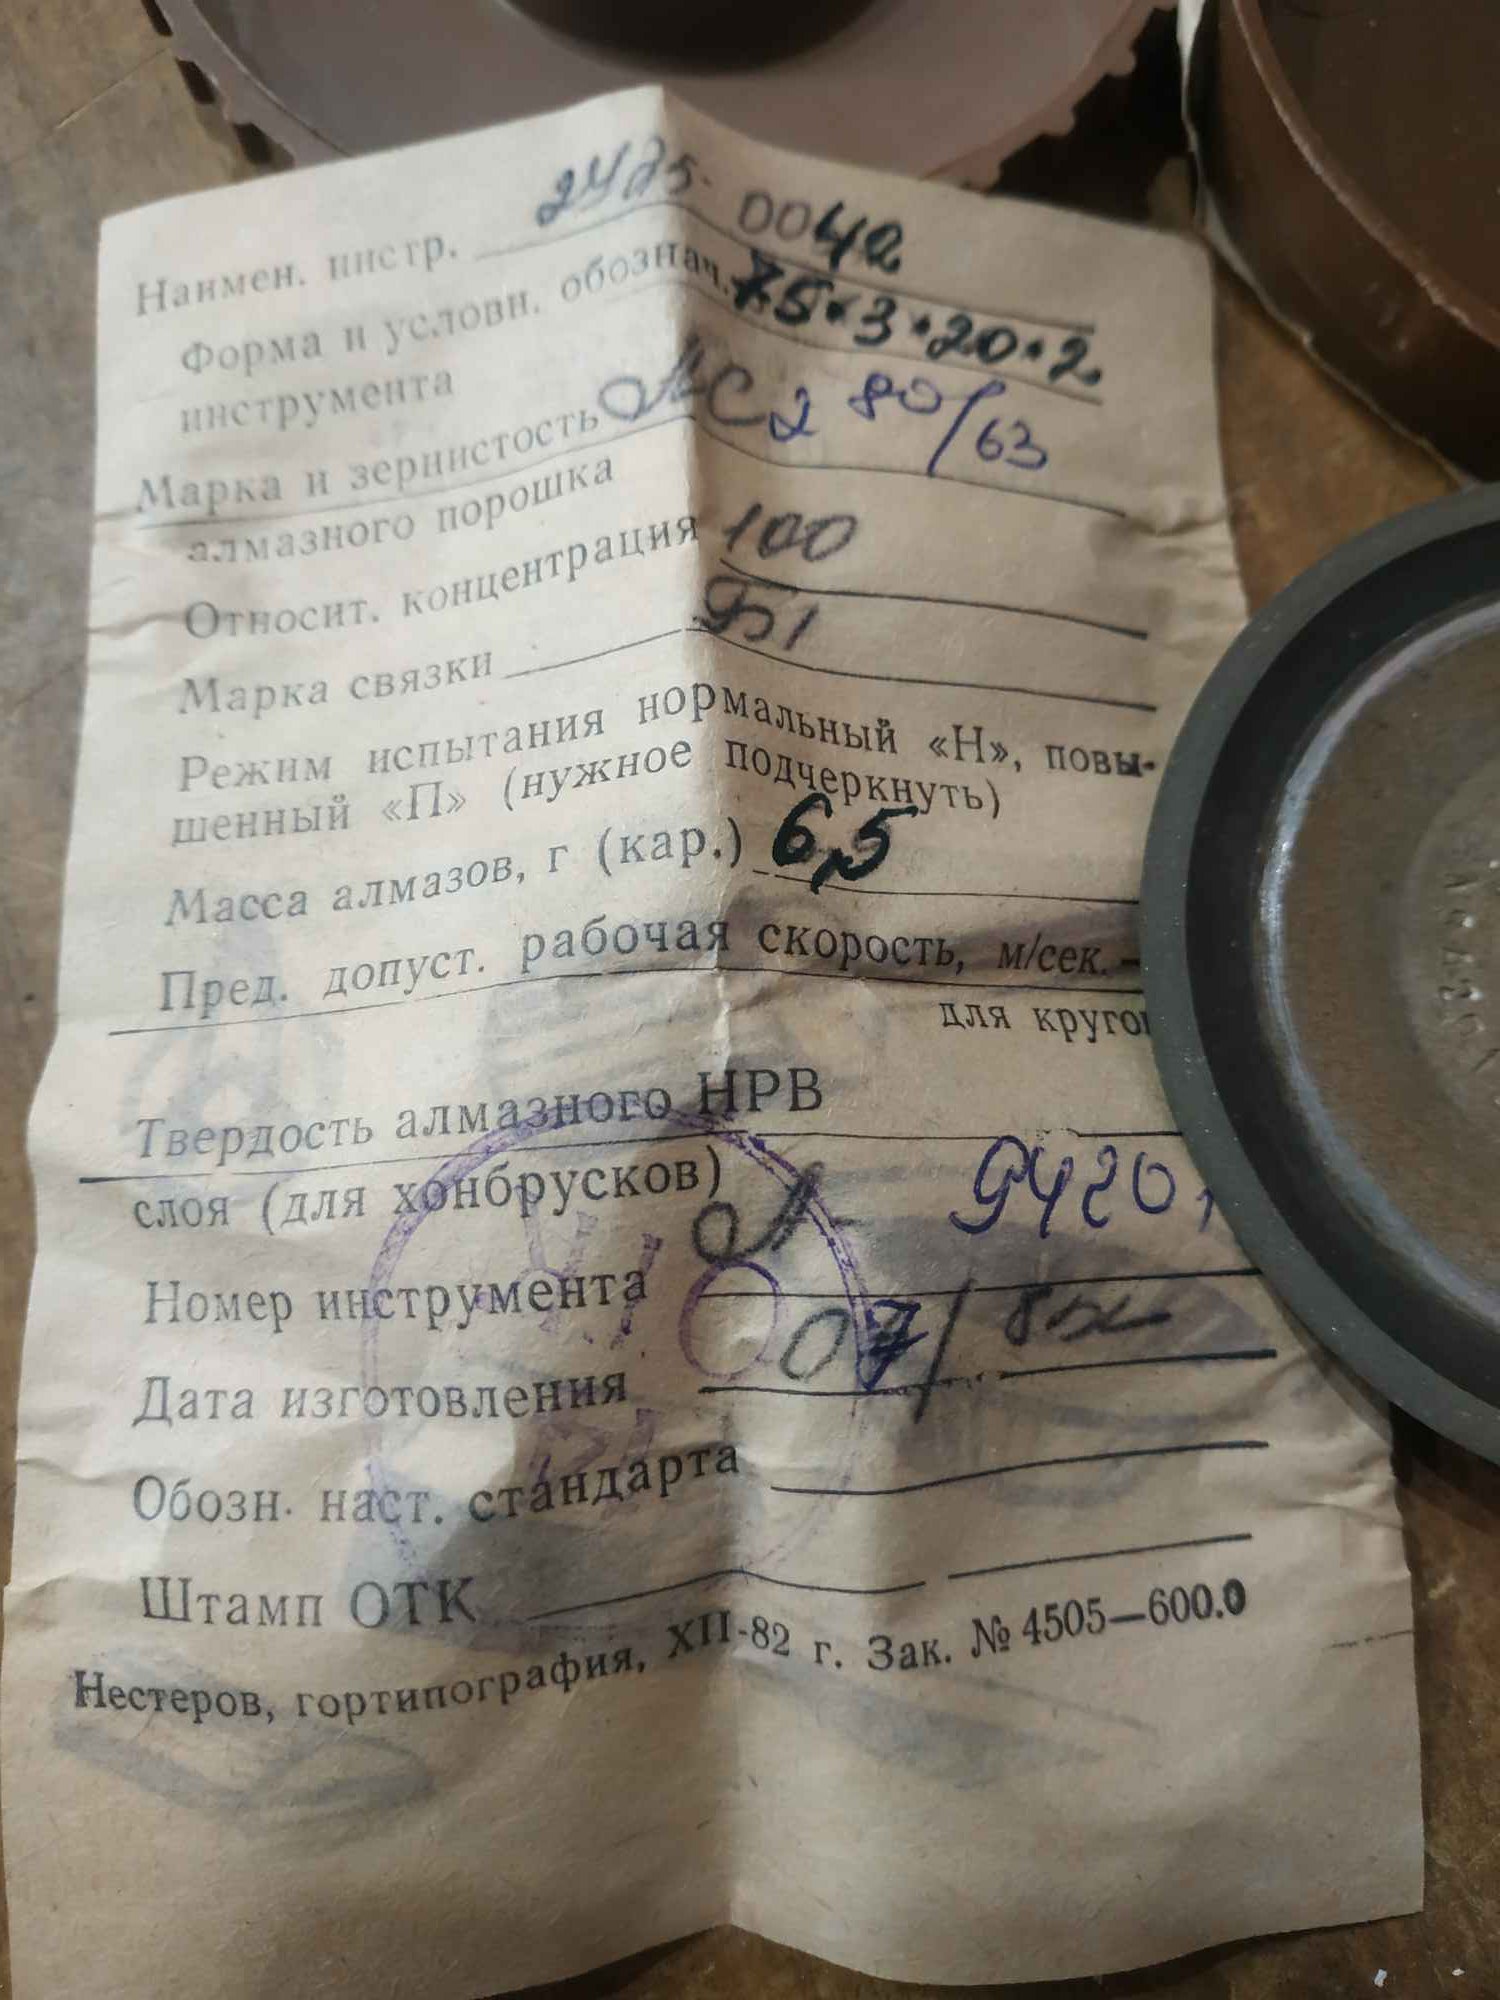 Наимен. инстр. 2425-0042
Форма и условн. обознач. 75×3×20×2
инструмента
Марка и зернистость АС2 80/63
алмазного порошка
Относит. концентрация 100
Марка связки Б1
Режим испытания нормальный «Н», повы-
шенный «П» (нужное подчеркнуть)
Масса алмазов, г (кар.) 6,5
Пред. допуст. рабочая скорость, м/сек. —
для круго
Твердость алмазного НРВ
слоя (для хонбрусков)
Номер инструмента А- 9420
Дата изготовления 07/
Обозн. наст. стандарта
Штамп ОТК
Нестеров, гортипография, XII-82 г. Зак. № 4505—600.0